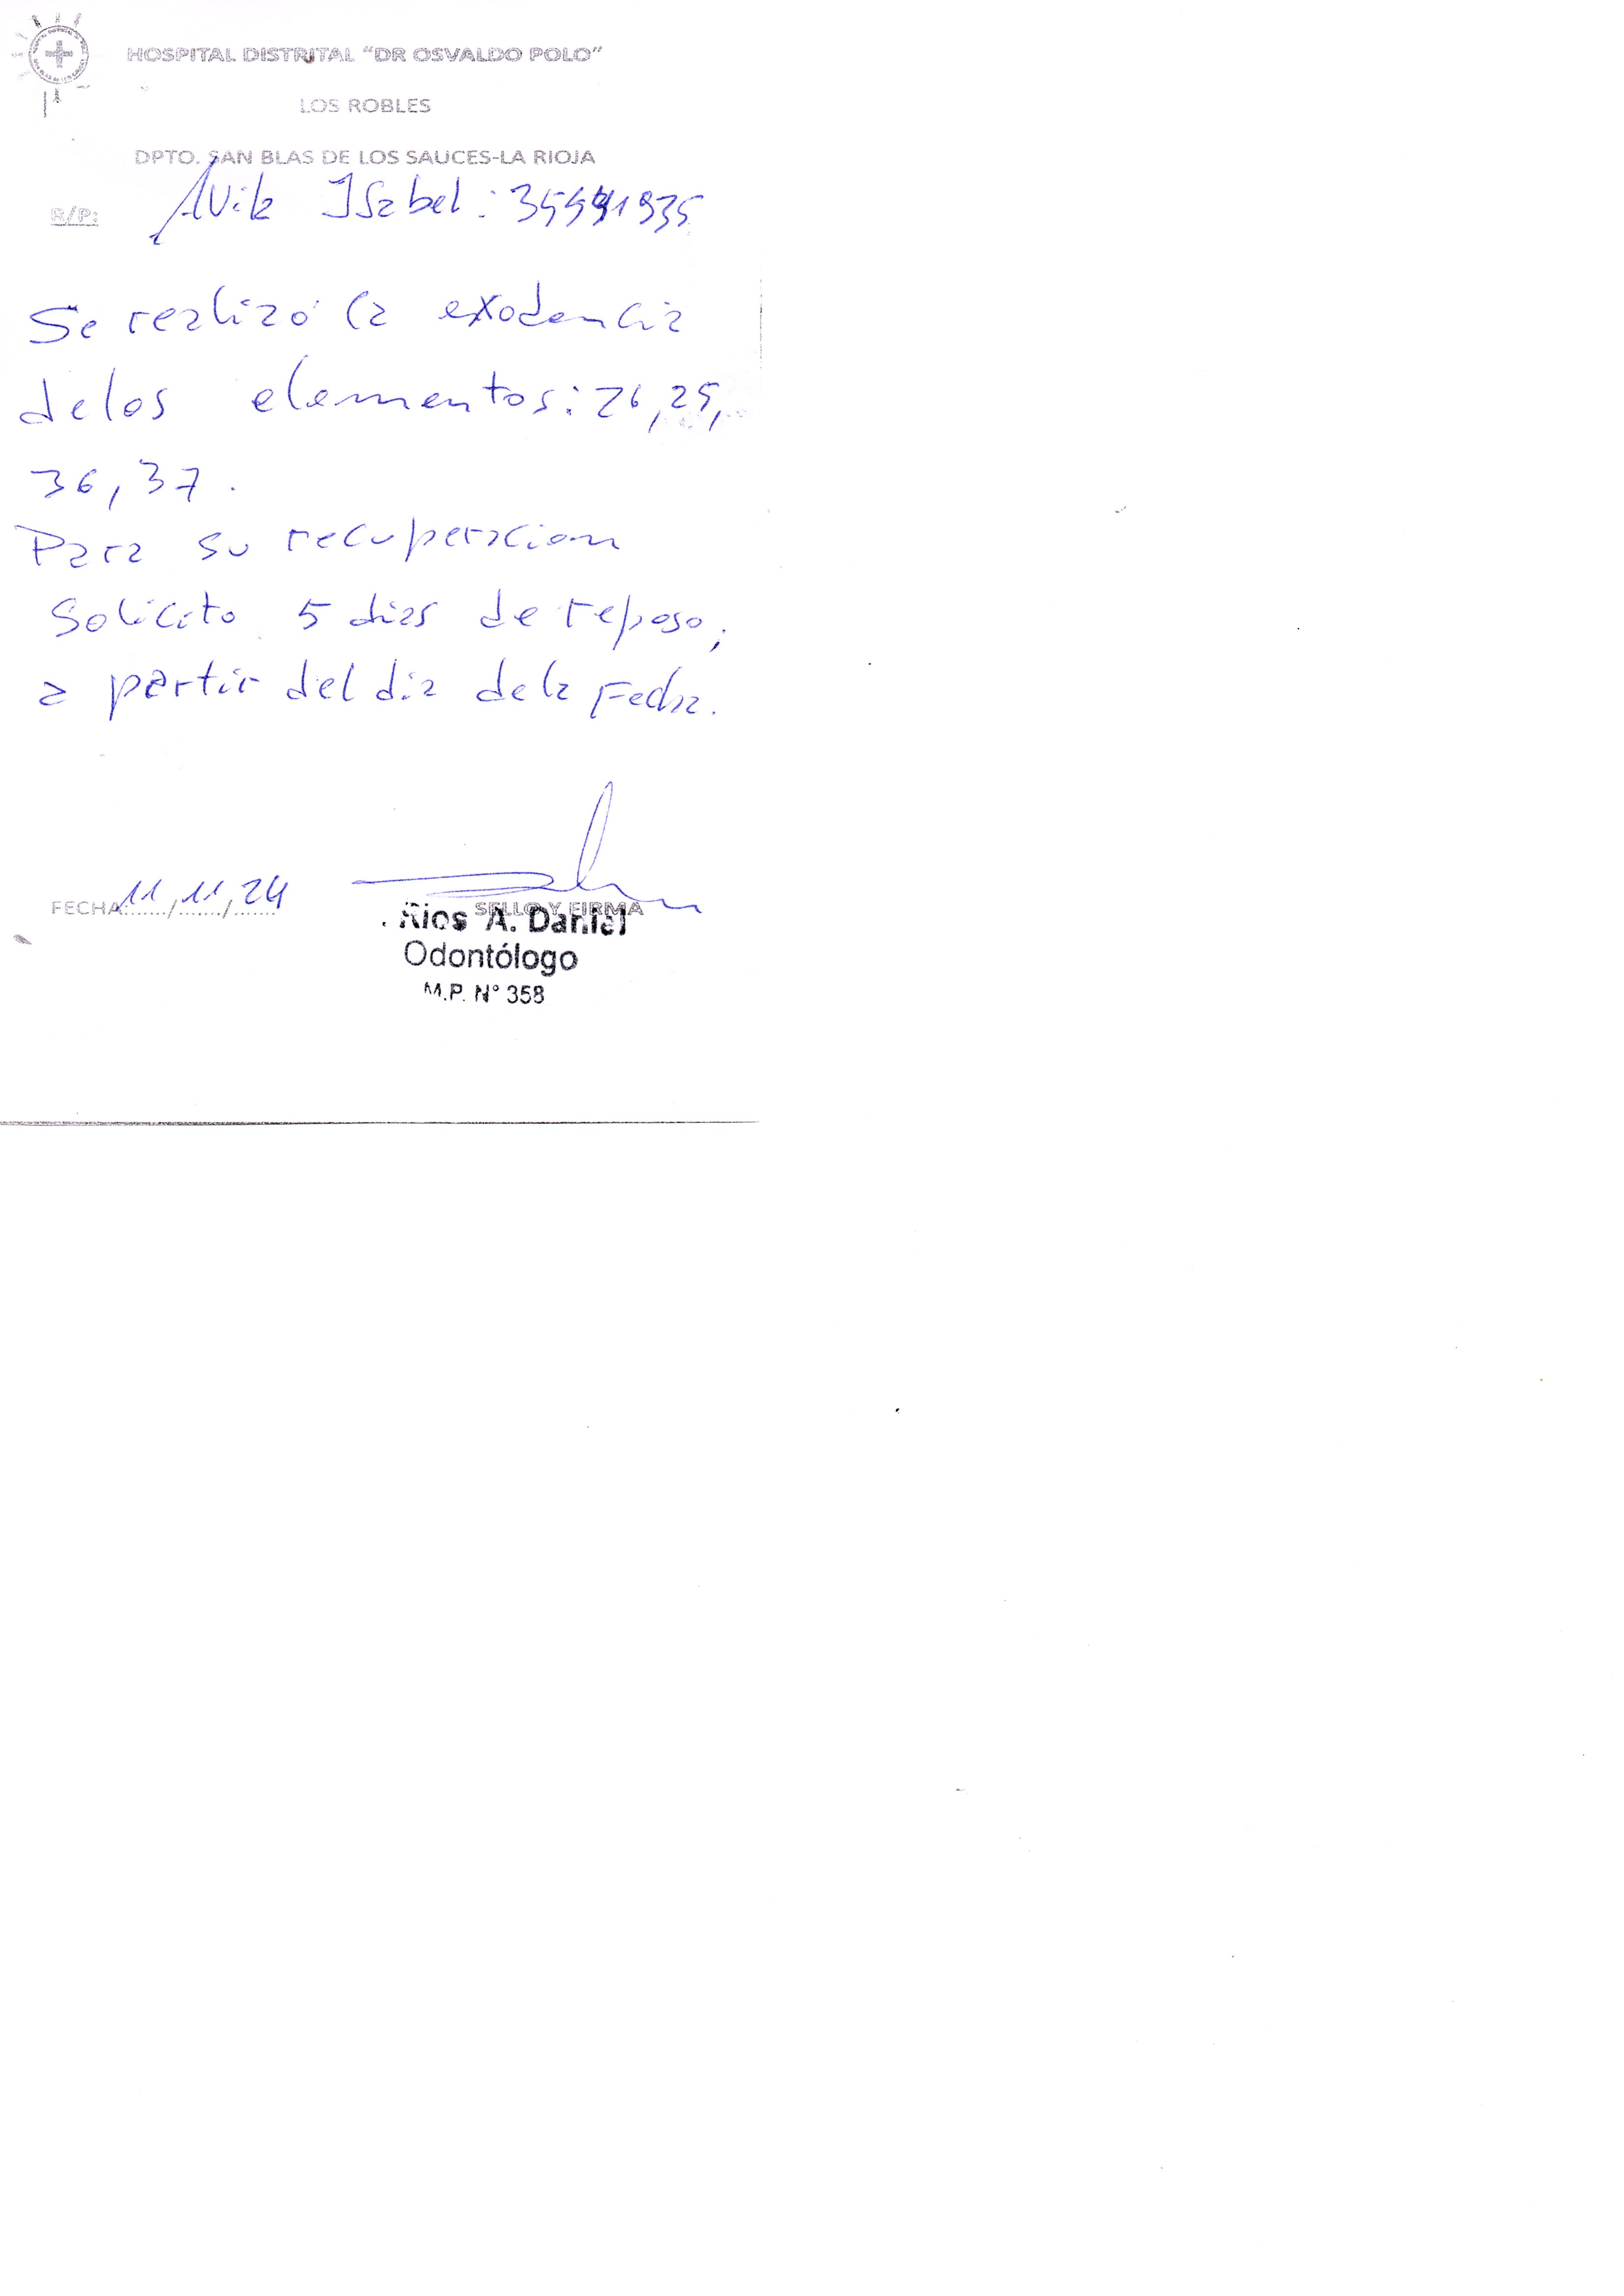 HOSPITAL DISTRITAL “DR OSVALDO POLO”
LOS ROBLES
DPTO. SAN BLAS DE LOS SAUCES-LA RIOJA
R/P: Avila Isabel:
Se realizó la exodoncia
de los elementos: 26, 25,
36, 37.
Para su recuperacion
Solicito 5 dias de reposo,
a partir del dia de la Fecha.
FECHA 11/11/24
SELLO Y FIRMA
Rios A. Daniel
Odontólogo
M.P. N° 358